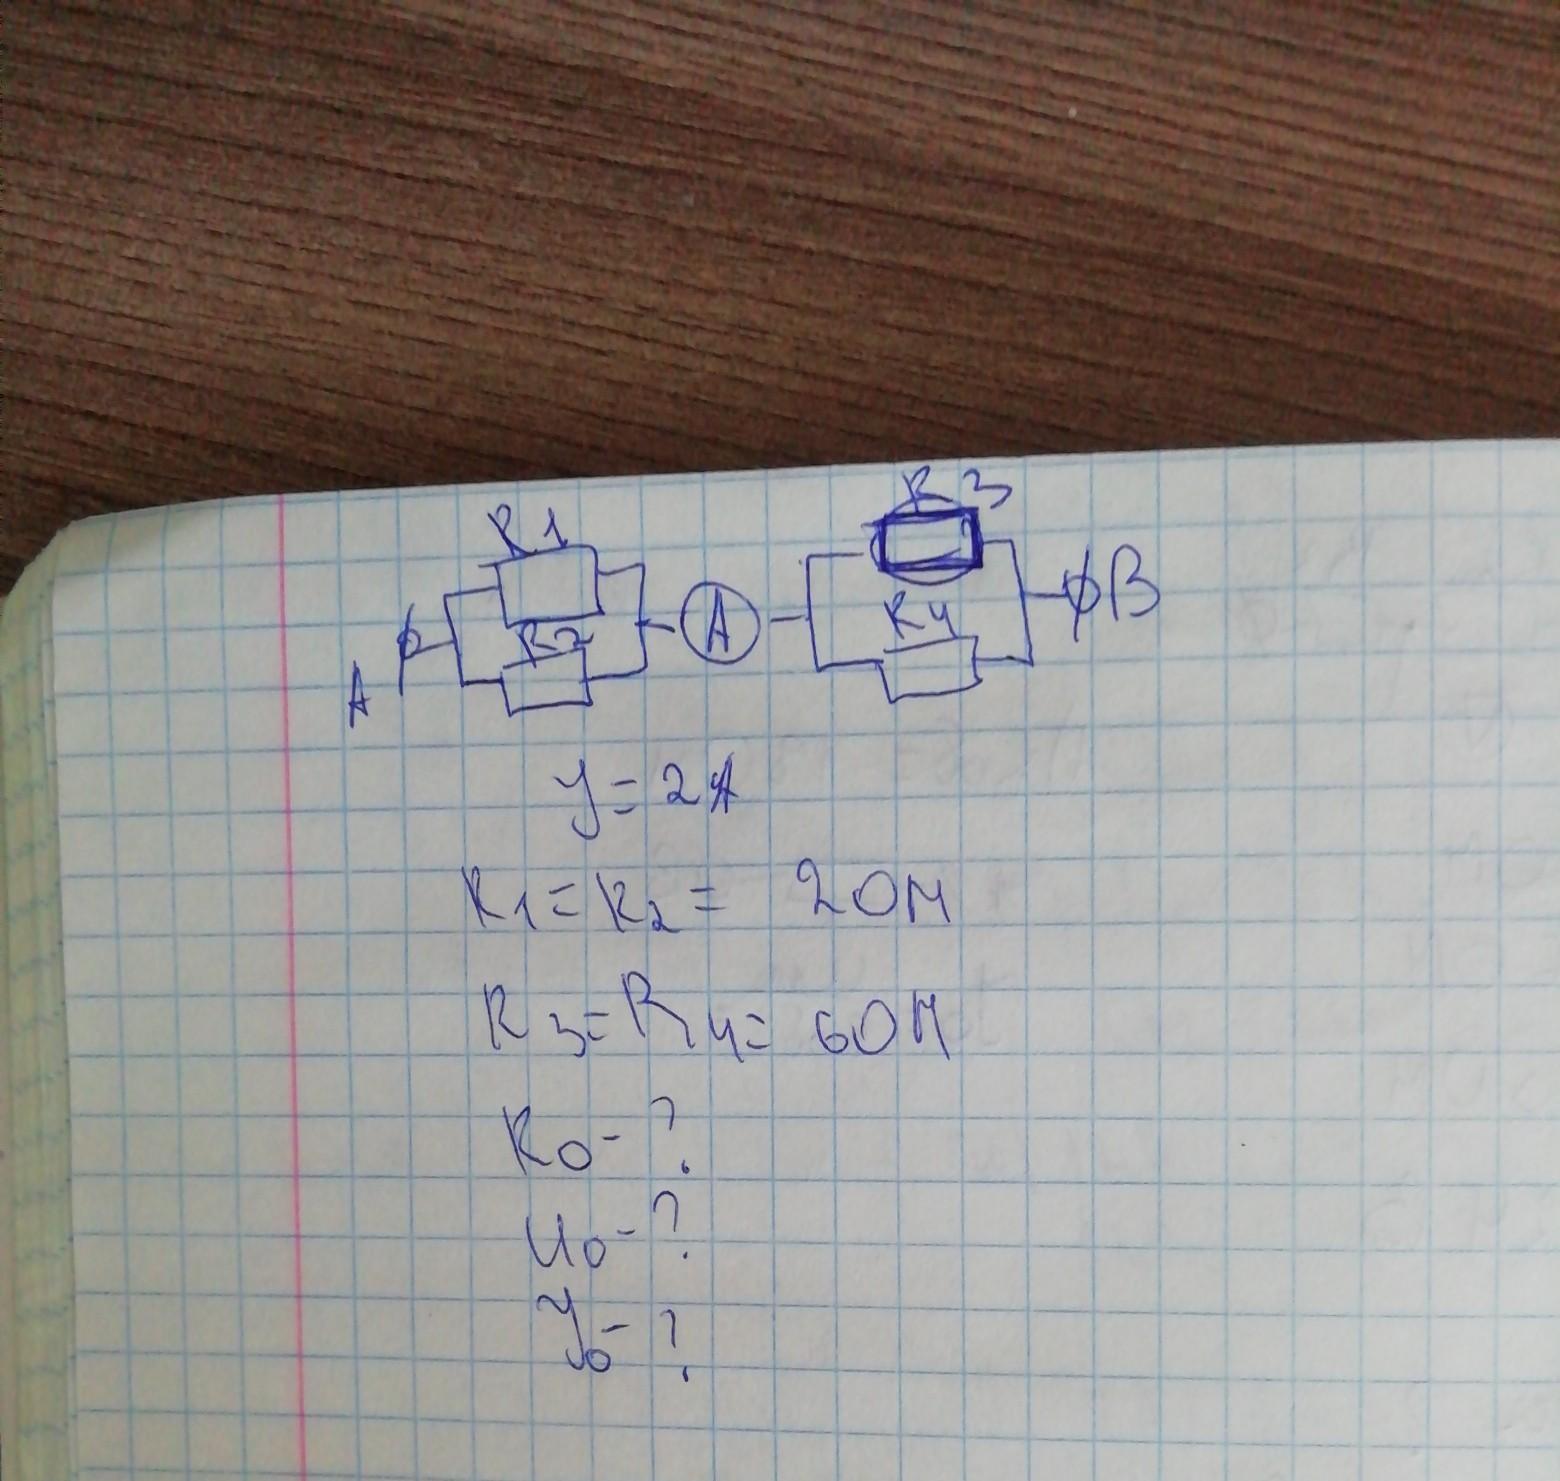 R1 R3
R2 A R4 B
A
У = 2А
R1 = R2 = 2 ОМ
R3 = R4 = 6 ОМ
R0 - ?
U0 - ?
У0 - ?